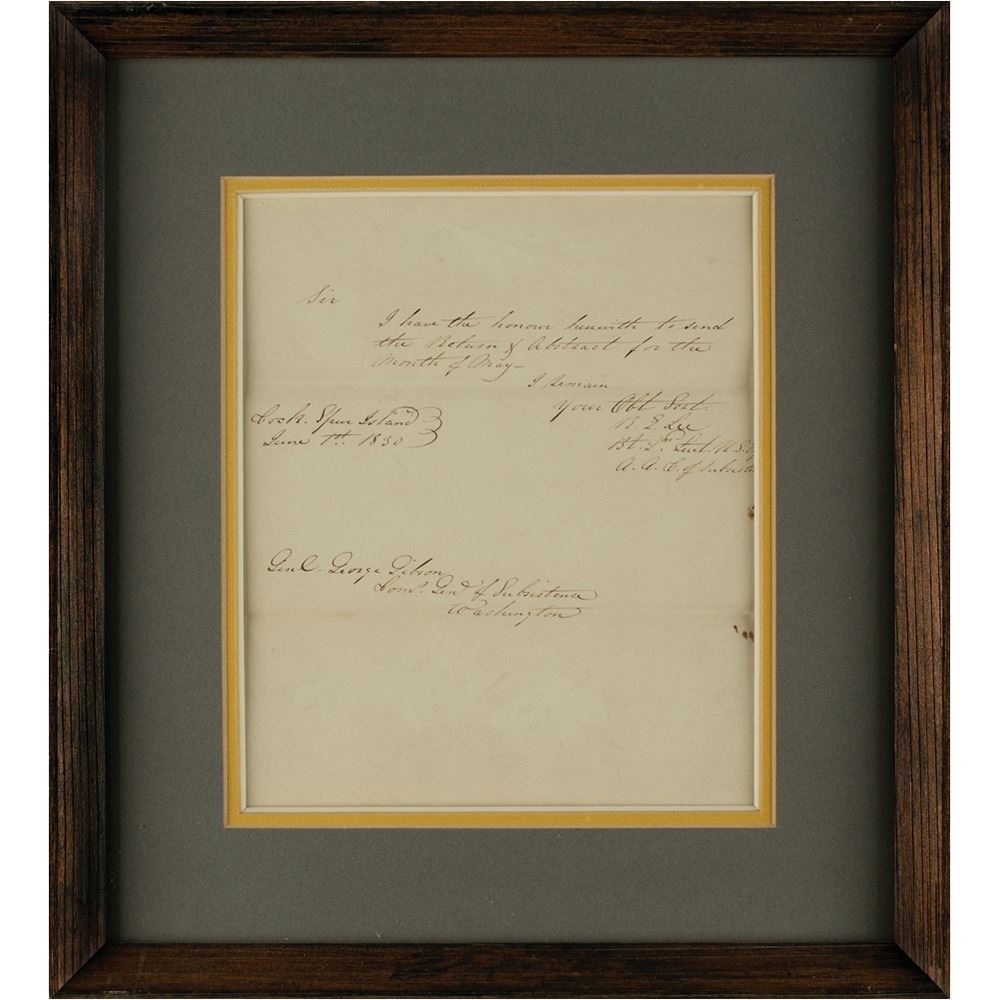 Sir
I have the honour herewith to send
the Return & Abstract for the
Month of May—
I remain
Your Obt Sert.
R. E. Lee
Cock Spur Island
June 1st. 1830
Lieut. U.S.
A. A. C. of Subsist
Genl. George Gibson
Comy. Genl of Subsistence
Washington